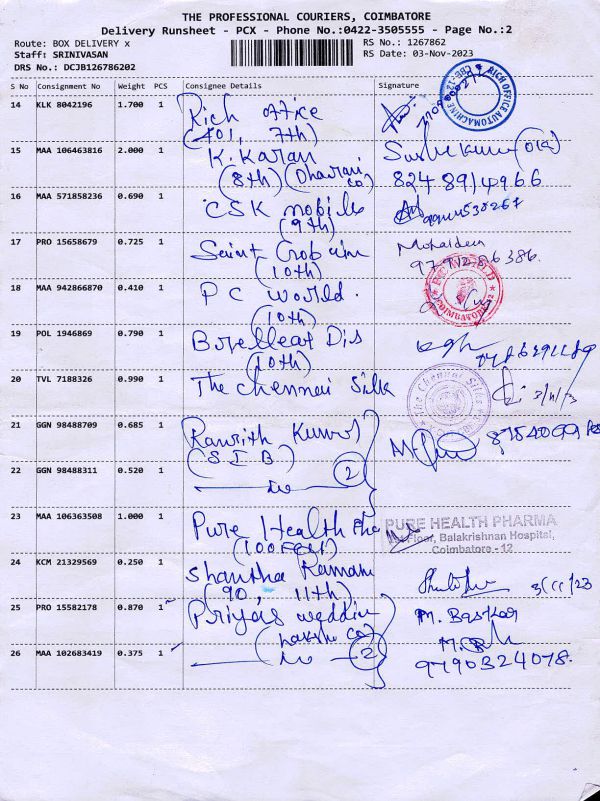 THE PROFESSIONAL COURIERS, COIMBATORE
Delivery Runsheet - PCX - Phone No.:0422-3505555 - Page No.:2
Route: BOX DELIVERY x RS No.: 1267862
Staff: SRINIVASAN RS Date: 03-Nov-2023
DRS No.: DCJB126786202
S No Consignment No Weight PCS Consignee Details Signature
14 KLK 8042196 1.700 1 Rich office
(401, 7th)
RICH OFFICE AUTOMACHINE CBE-12
15 MAA 106463816 2.000 1 K. Karan
(8th) (Dharani co)
8248914966
16 MAA 571858236 0.690 1 CSK mobile
(9th)
17 PRO 15658679 0.725 1 Saint Grobain
(10th)
Mohaideen
18 MAA 942866870 0.410 1 PC world.
(10th)
PC WORLD COIMBATORE
19 POL 1946869 0.790 1 Dis
(10th)
20 TVL 7188326 0.990 1 The Chennai Silk
The Chennai Silks
3/11/23
21 GGN 98488709 0.685 1 Ranjith Kumar
(S.I.B)
22 GGN 98488311 0.520 1 2
23 MAA 106363508 1.000 1 Pure Health Pha
(100 Feet)
PURE HEALTH PHARMA
Floor, Balakrishnan Hospital,
Coimbatore - 12
24 KCM 21329569 0.250 1 Shantha Ramani
(90, 11th)
3/11/23
25 PRO 15582178 0.870 1 Priyas weddin
M. Baskar
26 MAA 102683419 0.375 1 2
9790324078.